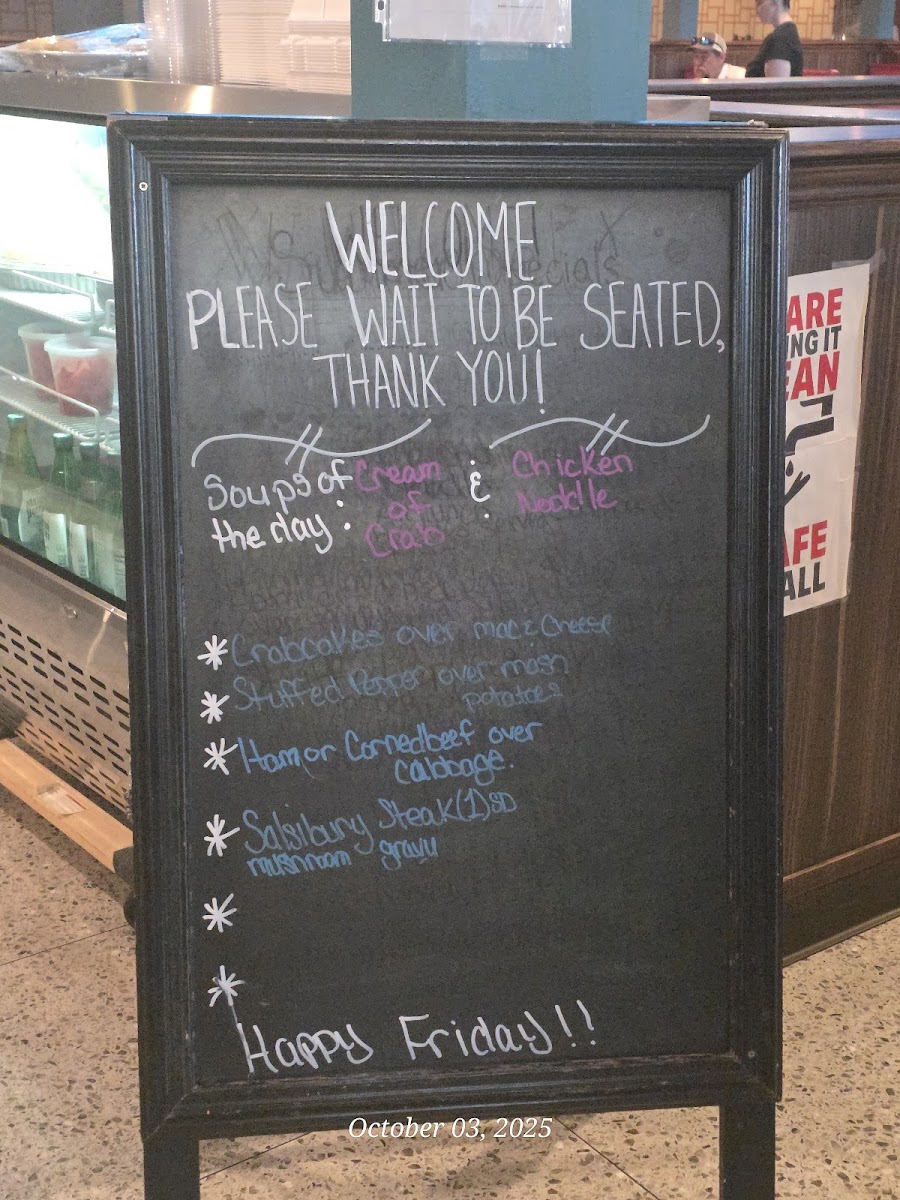 WELCOME
PLEASE WAIT TO BE SEATED,
THANK YOU!
Soups of the day :
Cream of Crab
&
Chicken Noodle
* Crabcakes over mac & Cheese
* Stuffed Pepper over mash
potatoes
* Ham or Cornedbeef over
Cabbage.
* Salsibury Steak (1) SD
mushroom gravy
*
*
Happy Friday!!
ARE
NG IT
EAN
AFE
ALL
October 03, 2025